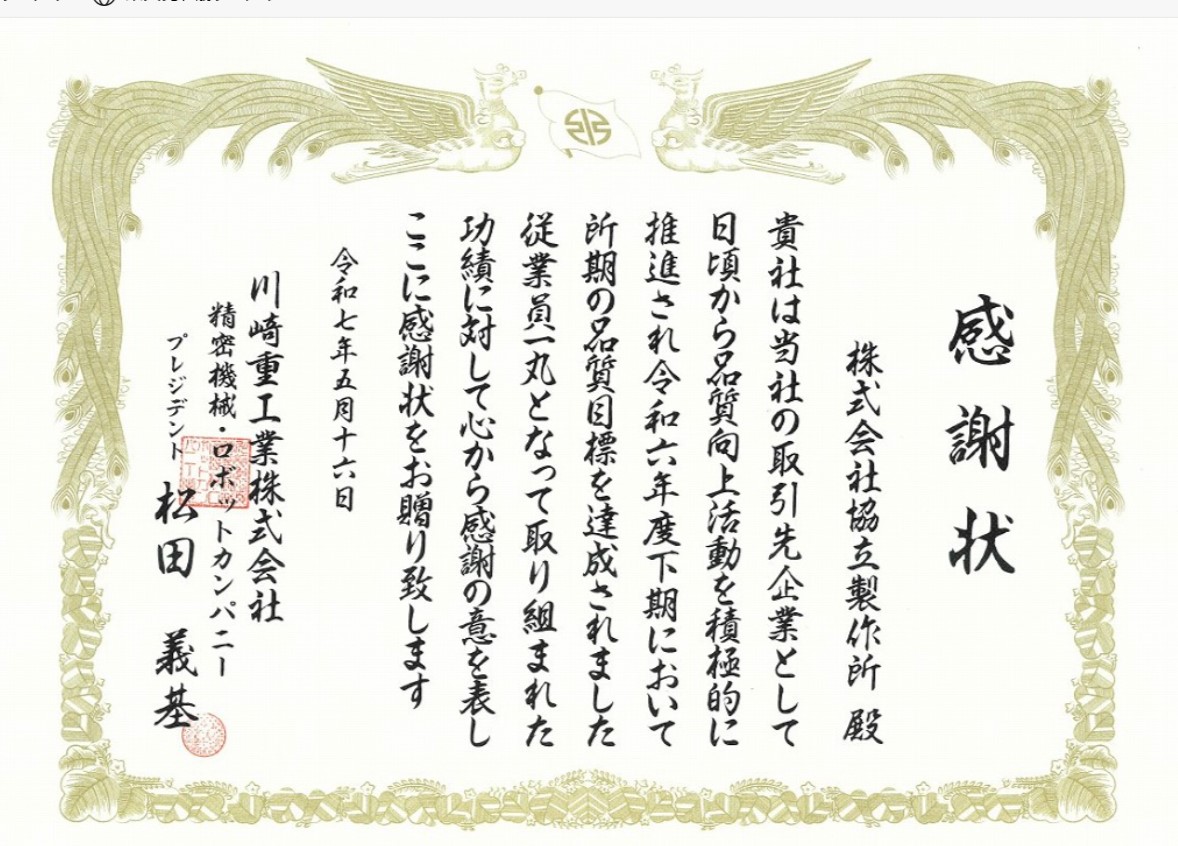 感謝状
株式会社協立製作所 殿
貴社は当社の取引先企業として
日頃から品質向上活動を積極的に
推進され令和六年度下期において
所期の品質目標を達成されました
従業員一丸となって取り組まれた
功績に対して心から感謝の意を表し
ここに感謝状をお贈り致します
令和七年五月十六日
川崎重工業株式会社
精密機械・ロボットカンパニー
プレジデント 松田 義基